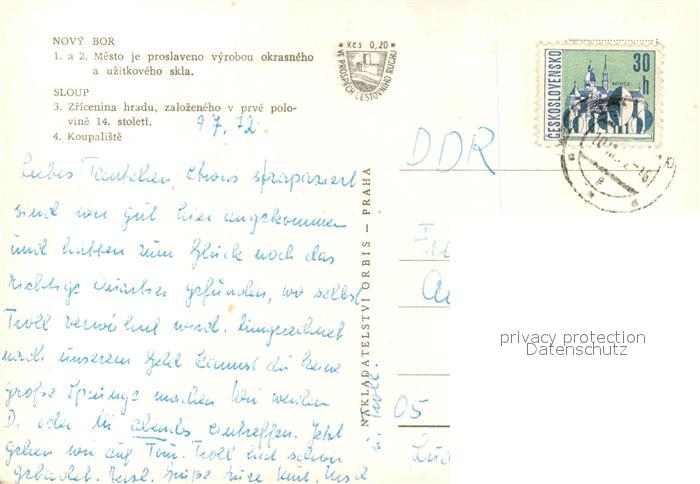 NOVÝ BOR
1. a 2. Město je proslaveno výrobou okrasného
a užitkového skla.
SLOUP
3. Zřícenina hradu, založeného v prvé polo-
vině 14. století.
4. Koupaliště
9.7.72
Liebes Tantchen, etwas strapaziert
sind wir gut hier angekommen
und hatten zum Glück noch das
richtige Quartier gefunden, wo selbst
Troll verwöhnt wird. Umgerechnet
nach unserem Geld kannst du keine
große Sprünge machen. Wir werden
Di oder Mi abends eintreffen. Jetzt
gehen wir auf Tour. Troll hat schon
gebadet. Herzl. Grüße
u. Troll.
NAKLADATELSTVÍ ORBIS — PRAHA
Kčs 0,20
VE PROSPĚCH CESTOVNÍHO RUCHU
ČESKOSLOVENSKO
30 h
DDR
05
privacy protection
Datenschutz